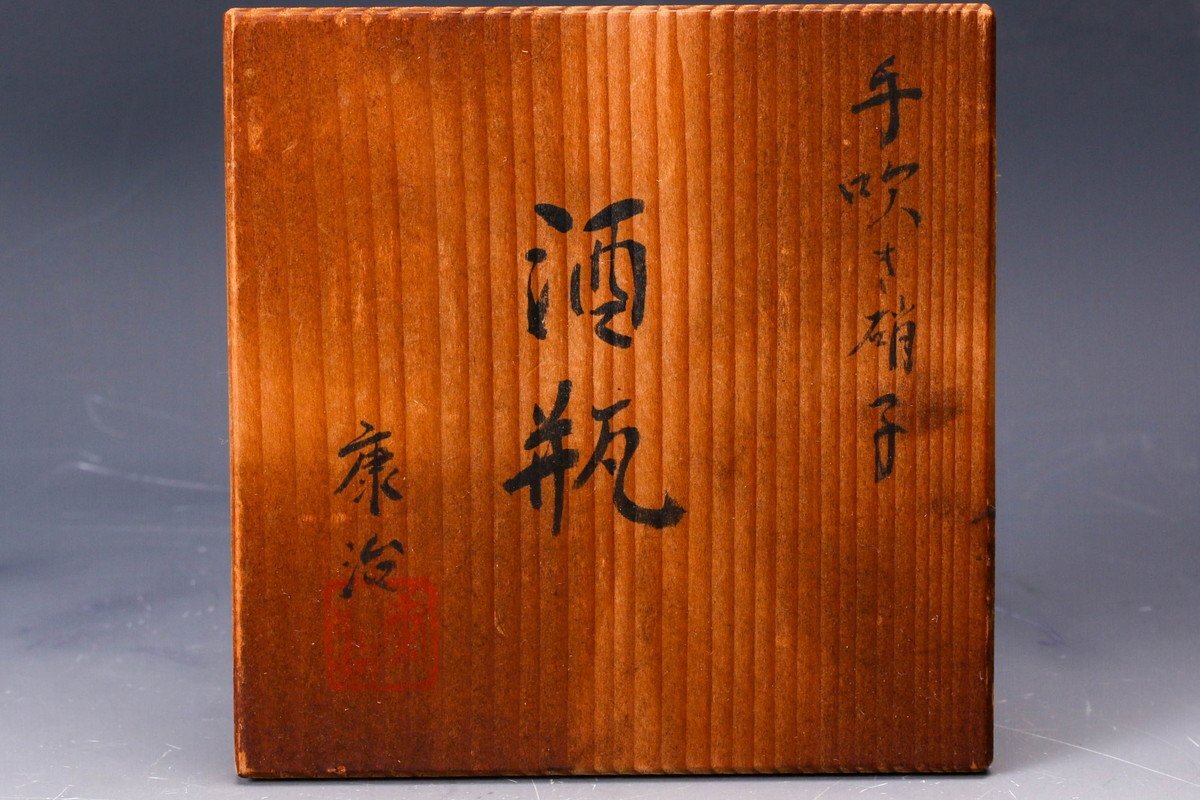 手吹き硝子
酒瓶
康治